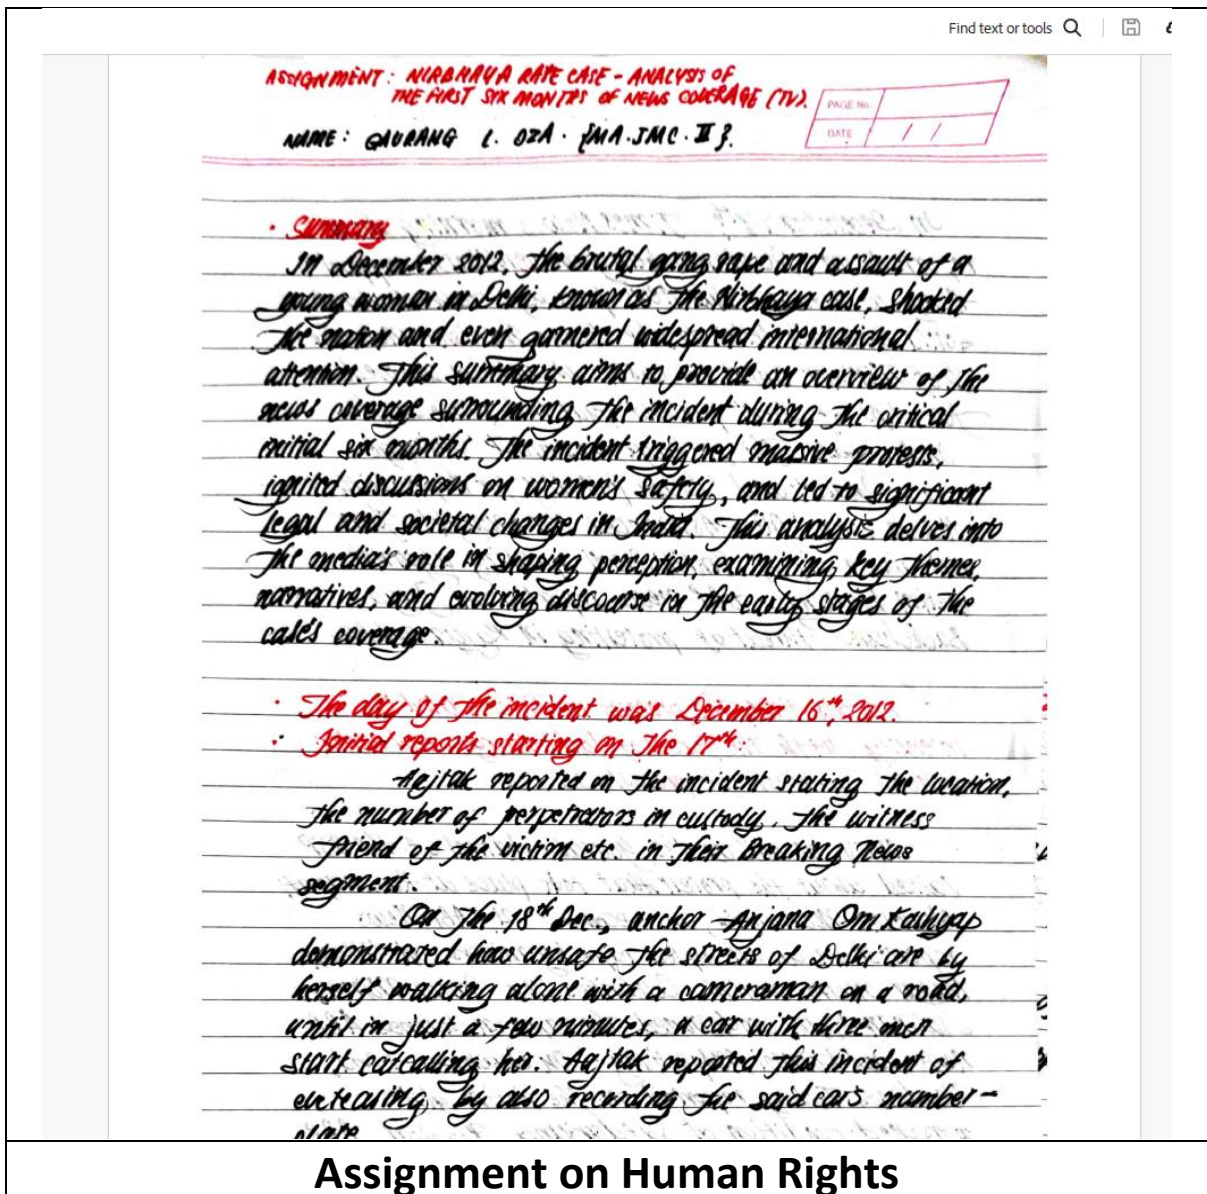 Find text or tools
ASSIGNMENT: NIRBHAYA RAPE CASE - ANALYSIS OF
THE FIRST SIX MONTHS OF NEWS COVERAGE (TV).
PAGE No.
DATE / /
NAME: GAURANG L. OZA. {MA.JMC.II}.
• Summary
In December 2012, the brutal gang rape and assault of a
young woman in Delhi, known as the Nirbhaya case, shocked
the nation and even garnered widespread international
attention. This summary aims to provide an overview of the
news coverage surrounding the incident during the critical
initial six months. The incident triggered massive protests,
ignited discussions on women's safety, and led to significant
legal and societal changes in India. This analysis delves into
the media's role in shaping perception, examining key themes,
narratives, and evolving discourse in the early stages of the
case's coverage.
• The day of the incident was December 16th, 2012.
• Initial reports starting on the 17th.
Aajtak reported on the incident stating the location,
the number of perpetrators in custody, the witness
friend of the victim etc. in their Breaking News
segment.
On the 18th Dec., anchor Anjana Om Kashyap
demonstrated how unsafe the streets of Delhi are by
herself walking alone with a cameraman on a road,
until in just a few minutes, a car with three men
start catcalling her. Aajtak reported this incident of
eveteasing by also recording the said car's number-
plate
Assignment on Human Rights